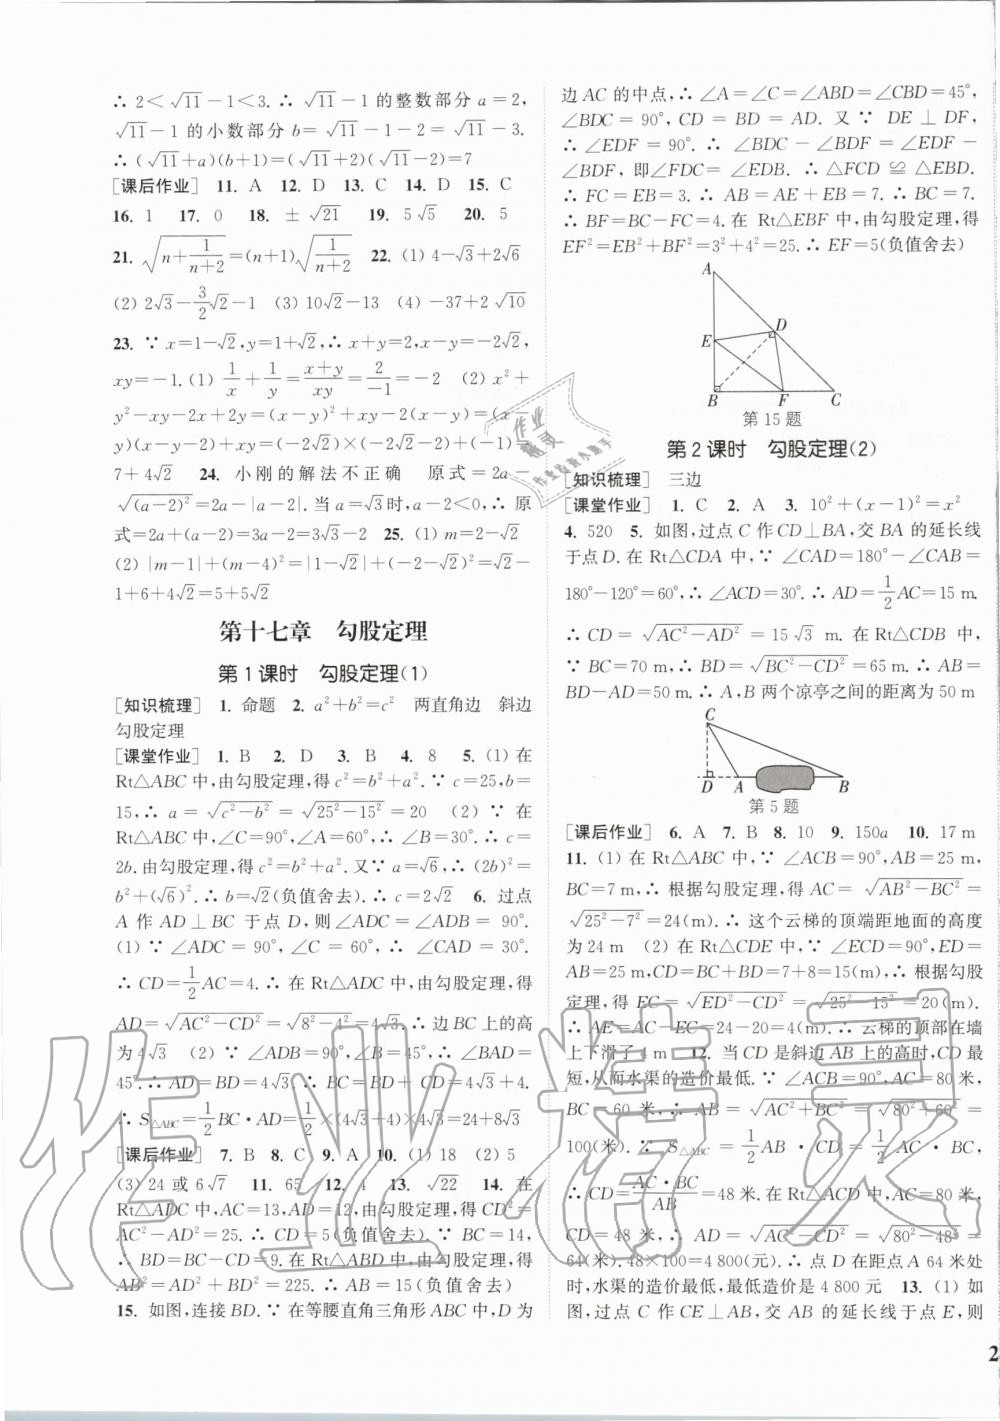 ∴ 2<√11-1<3. ∴ √11-1的整数部分a=2,
√11-1的小数部分b=√11-1-2=√11-3.
∴ (√11+a)(b+1)=(√11+2)(√11-2)=7
[课后作业] 11. A 12. D 13. C 14. D 15. C
16. 1 17. 0 18. ±√21 19. 5√5 20. 5
21. √(n+1/(n+2))=(n+1)√(1/(n+2)) 22. (1) 4-√3+2√6
(2) 2√3-3/2√2-1 (3) 10√2-13 (4) -37+2√10
23. ∵ x=1-√2,y=1+√2,∴ x+y=2,x-y=-2√2,
xy=-1.(1) 1/x+1/y=(x+y)/xy=2/-1=-2 (2) x²+
y²-xy-2x+2y=(x-y)²-2(x-y)+xy=(-2√2)²-2×(-2√2)+(-1)=
7+4√2 24. 小刚的解法不正确 原式=2a-
√(a-2)²=2a-|a-2|.当a=√3时,a-2<0,∴ 原
式=2a+(a-2)=3a-2=3√3-2 25. (1) -m=2-√2
(2) |m-1|+(m-4)²=|1-√2|+(-2-√2)²=√2-
1+6+4√2=5+5√2
第十七章 勾股定理
第1课时 勾股定理(1)
[知识梳理] 1. 命题 2. a²+b²=c² 两直角边 斜边
勾股定理
[课堂作业] 1. B 2. D 3. B 4. 8 5. (1) 在
Rt△ABC中,由勾股定理,得c²=b²+a².∵ c=25,b=
15,∴ a=√c²-b²=√25²-15²=20 (2) ∵ 在
Rt△ABC中,∠C=90°,∠A=60°,∴ ∠B=30°.∴ c=
2b.由勾股定理,得c²=b²+a².又∵ a=√6,∴ (2b)²=
b²+(√6)².∴ b=√2(负值舍去).∴ c=2√2 6. 过点
A作AD⊥BC于点D,则∠ADC=∠ADB=90°.
(1) ∵ ∠ADC=90°,∠C=60°,∴ ∠CAD=30°.
∴ CD=1/2AC=4.∴ 在Rt△ADC中,由勾股定理,得
AD=√AC²-CD²=√8²-4²=4√3.∴ 边BC上的高
为4√3 (2) ∵ ∠ADB=90°,∠B=45°,∴ ∠BAD=
45°.∴ AD=BD=4√3.∴ BC=BD+CD=4√3+4.
∴ S△ABC=1/2BC·AD=1/2×(4√3+4)×4√3=24+8√3
[课后作业] 7. B 8. C 9. A 10. (1) 18 (2) 5
(3) 24或6√7 11. 65 12. 4 13. √22 14. 在
Rt△ADC中,AC=13,AD=12,由勾股定理,得CD²=
AC²-AD²=25.∴ CD=5(负值舍去).∵ BC=14,
∴ BD=BC-CD=9.在Rt△ABD中,由勾股定理,得
AB²=AD²+BD²=225.∴ AB=15(负值舍去)
15. 如图,连接BD.∵ 在等腰直角三角形ABC中,D为
边AC的中点,∴ ∠A=∠C=∠ABD=∠CBD=45°,
∠BDC=90°,CD=BD=AD.又∵ DE⊥DF,
∴ ∠EDF=90°.∴ ∠BDC-∠BDF=∠EDF-
∠BDF,即∠FDC=∠EDB.∴ △FCD≌△EBD.
∴ FC=EB=3.∴ AB=AE+EB=7.∴ BC=7.
∴ BF=BC-FC=4.在Rt△EBF中,由勾股定理,得
EF²=EB²+BF²=3²+4²=25.∴ EF=5(负值舍去)
A
D
E
B F C
第15题
第2课时 勾股定理(2)
[知识梳理] 三边
[课堂作业] 1. C 2. A 3. 10²+(x-1)²=x²
4. 520 5. 如图,过点C作CD⊥BA,交BA的延长线
于点D.在Rt△CDA中,∵ ∠CAD=180°-∠CAB=
180°-120°=60°,∴ ∠ACD=30°.∴ AD=1/2AC=15 m.
∴ CD=√AC²-AD²=15√3 m.在Rt△CDB中,
∵ BC=70 m,∴ BD=√BC²-CD²=65 m.∴ AB=
BD-AD=50 m.∴ A,B两个凉亭之间的距离为50 m
C
D A B
第5题
[课后作业] 6. A 7. B 8. 10 9. 150a 10. 17 m
11. (1) 在Rt△ABC中,∵ ∠ACB=90°,AB=25 m,
BC=7 m,∴ 根据勾股定理,得AC=√AB²-BC²=
√25²-7²=24(m).∴ 这个云梯的顶端距地面的高度
为24 m (2) 在Rt△CDE中,∵ ∠ECD=90°,ED=
AB=25 m,CD=BC+BD=7+8=15(m),∴ 根据勾股
定理,得EC=√ED²-CD²=√25²-15²=20(m).
∴ AE=AC-EC=24-20=4(m).∴ 云梯的顶部在墙
上下滑了4 m 12. 当CD是斜边AB上的高时,CD最
短,从而水渠的造价最低.∵ ∠ACB=90°,AC=80米,
BC=60米,∴ AB=√AC²+BC²=√80²+60²=
100(米).∵ S△ABC=1/2AB·CD=1/2AC·BC,
∴ CD=AC·BC/AB=48米.在Rt△ACD中,AC=80米,
CD=48米,∴ AD=√AC²-CD²=√80²-48²=
64(米).48×100=4800(元).∴ 点D在距点A 64米处
时,水渠的造价最低,最低造价是4 800元 13. (1) 如
图,过点C作CE⊥AB,交AB的延长线于点E,则
2
作业精灵